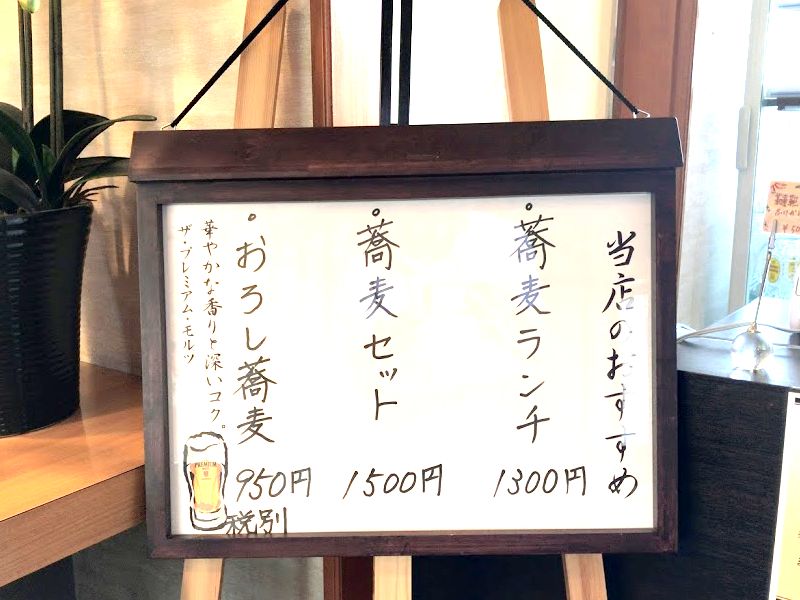 当店のおすすめ
・蕎麦ランチ
1300円
・蕎麦セット
1500円
・おろし蕎麦
950円
税別
華やかな香りと深いコク。
ザ・プレミアム・モルツ
PREMIUM